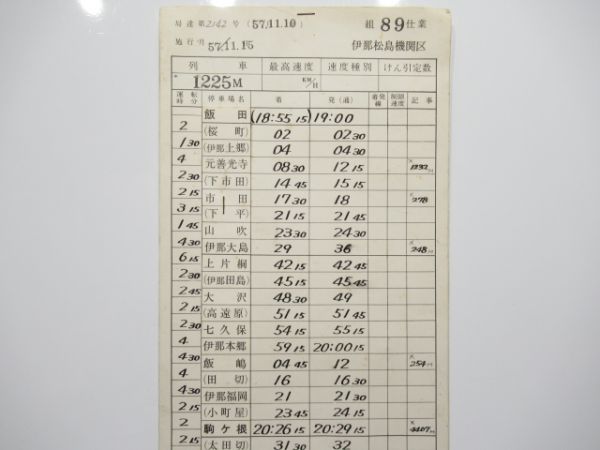 局達第2142号 (57.11.10) 組 89仕業
施行 57.11.15 伊那松島機関区
列 車 最高速度 速度種別 けん引定数
1225M KM/H
運転時分 停車場名 着 発(通) 着発線 制限速度 記事
飯田 (18:55 15) 19:00
2
(桜町) 02 02 30
1 30
(伊那上郷) 04 04 30
4
元善光寺 08 30 12 15 ×1232
2 30
(下市田) 14 45 15 15
2 15
市田 17 30 18 ×278
3 15
(下平) 21 15 21 45
1 45
山吹 23 30 24 30
4 30
伊那大島 29 36 ×248
6 15
上片桐 42 15 42 45
2 30
(伊那田島) 45 15 45 45
2 45
大沢 48 30 49
2 15
(高遠原) 51 15 51 45
2 30
七久保 54 15 55 15
4
伊那本郷 59 15 20:00 15
4 30
飯嶋 04 45 12 ×254
4
(田切) 16 16 30
4 30
伊那福岡 21 21 30
2 15
(小町屋) 23 45 24 15
2
駒ケ根 20:26 15 20:29 15
2 15
(太田切) 31 30 32